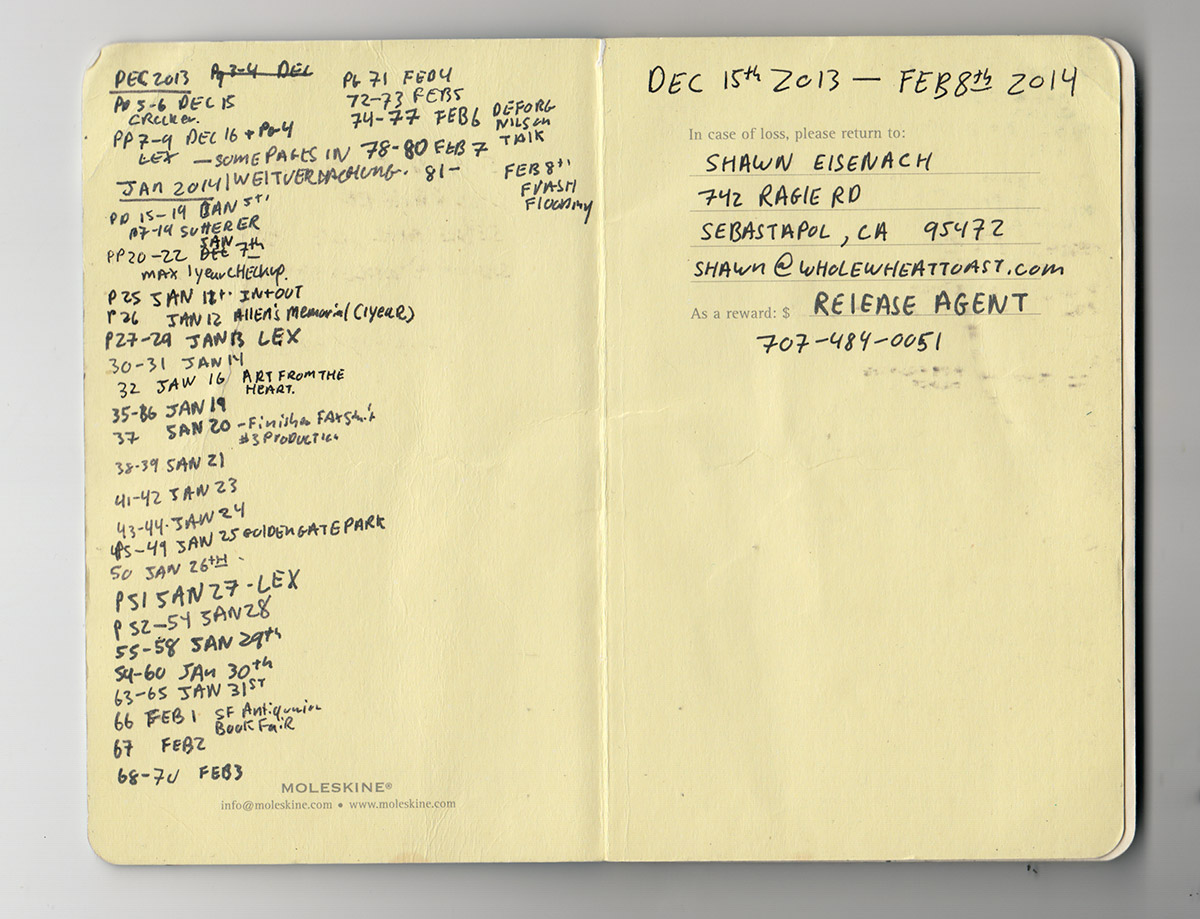 DEC 2013 Pg 3-4 DEC
PP 5-6 DEC 15
CRACKER.
PP 7-9 DEC 16 + PG-4
LEX — SOME PAGES IN
JAN 2014 | WEITVERDACHUNG.
PP 15-19 JAN 5th
17-19 SUTTERER
PP 20-22 DEC JAN 7th
MAX 1 year CHECKUP.
P 25 JAN IN+OUT
P 26 JAN 12 Allen's Memorial (1 YEAR)
P 27-29 JAN 13 LEX
30-31 JAN 14
32 JAN 16 ART FROM THE
HEART.
35-36 JAN 19
37 JAN 20 - Finished
#3 PRODUCTION
38-39 JAN 21
41-42 JAN 23
43-44 - JAN 24
45-49 JAN 25 GOLDEN GATE PARK
50 JAN 26TH
P 51 JAN 27 - LEX
P 52-54 JAN 28
55-58 JAN 29th
59-60 JAN 30th
63-65 JAN 31ST
66 FEB 1 SF Antiquarian
BOOK FAIR
67 FEB 2
68-70 FEB 3
PG 71 FEB 4
72-73 FEB 5
74-77 FEB 6 DEFORG
NILSEN
TALK
78-80 FEB 7
81- FEB 8th
FLASH
FLOODING
MOLESKINE®
info@moleskine.com • www.moleskine.com
DEC 15th 2013 — FEB 8th 2014
In case of loss, please return to:
SHAWN EISENACH
742 RAGLE RD
SEBASTAPOL, CA 95472
SHAWN@WHOLEWHEATTOAST.COM
As a reward: $ RELEASE AGENT
707-484-0051